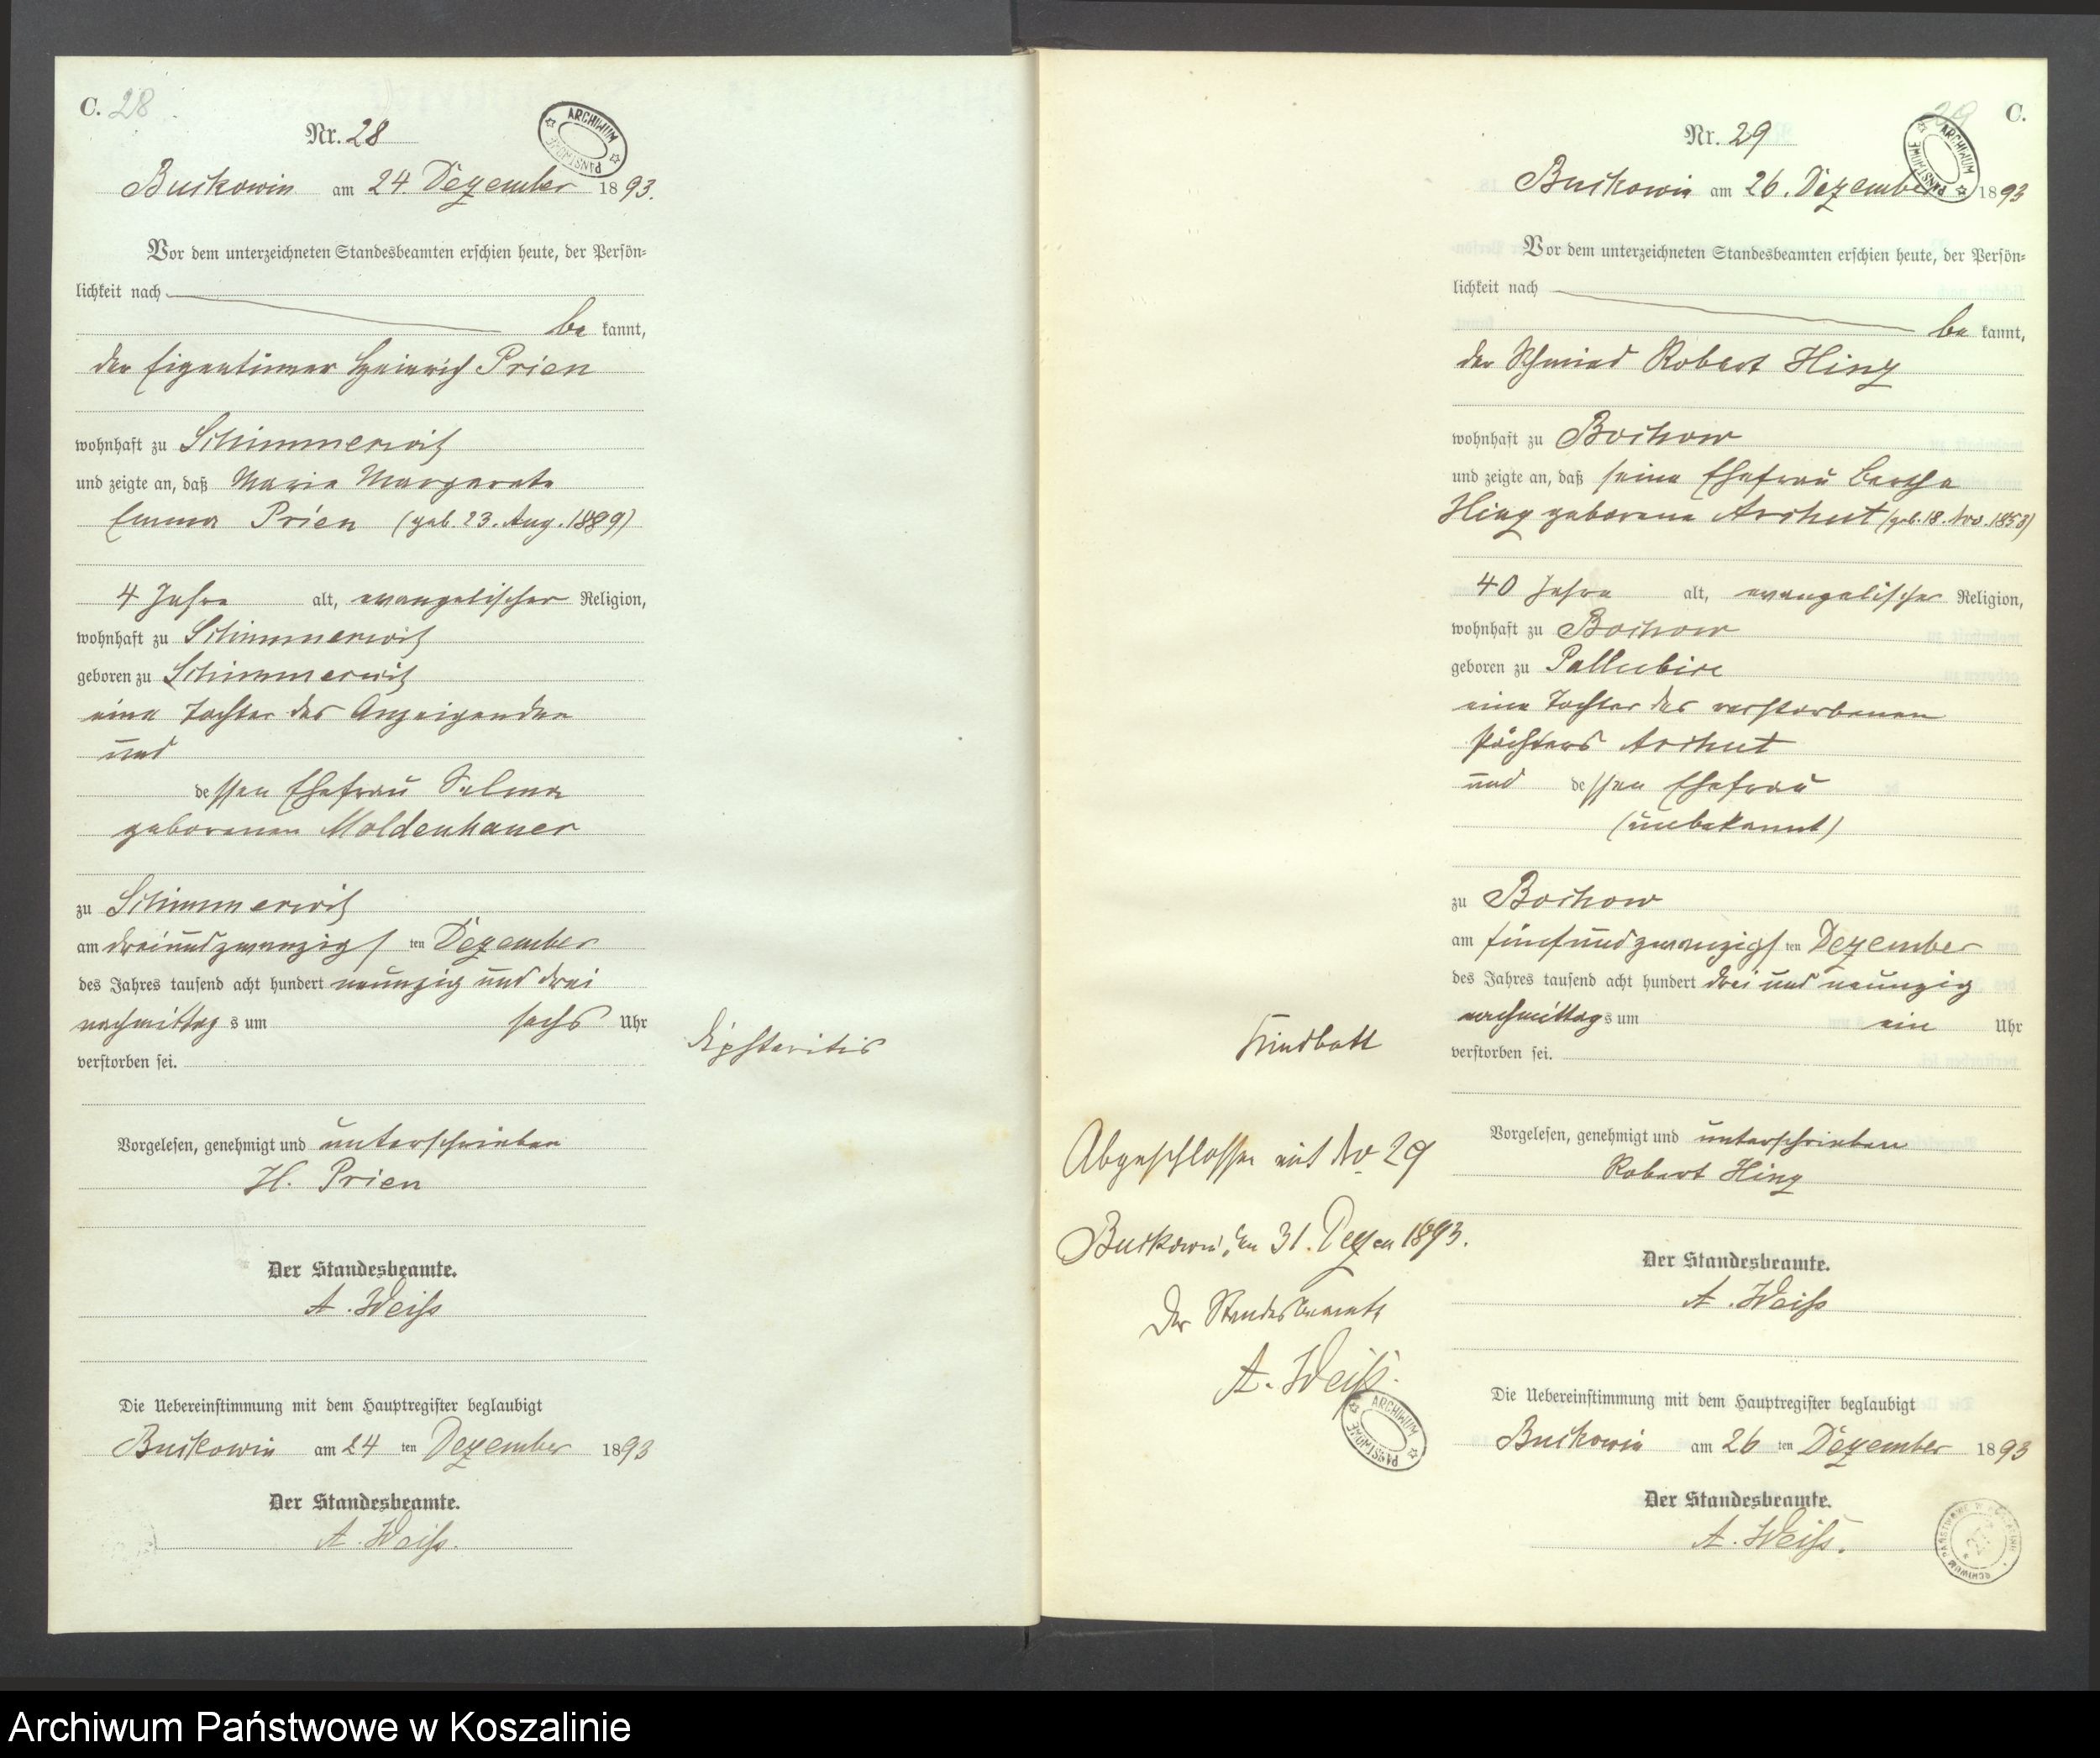 C. 28
Nr. 28
ARCHIWUM PAŃSTWOWE
Buckowin am 24 Dezember 1893.
Vor dem unterzeichneten Standesbeamten erschien heute, der Persön-
lichkeit nach
be kannt,
der Eigentümer Heinrich Prien
wohnhaft zu Schimmerwitz
und zeigte an, daß Maria Margarete
Emma Prien (geb. 23. Aug. 1889)
4 Jahre alt, evangelischer Religion,
wohnhaft zu Schimmerwitz
geboren zu Schimmerwitz
eine Tochter des Anzeigenden
und
dessen Ehefrau Selma
geborenen Moldenhauer
zu Schimmerwitz
am dreiundzwanzigsten Dezember
des Jahres tausend acht hundert neunzig und drei
nachmittags um sechs Uhr
verstorben sei.
Diphteritis
Vorgelesen, genehmigt und unterschrieben
H. Prien
Der Standesbeamte.
A. Weiß
Die Uebereinstimmung mit dem Hauptregister beglaubigt
Buckowin am 24 ten Dezember 1893
Der Standesbeamte.
A. Weiß.
29 C.
Nr. 29
ARCHIWUM PAŃSTWOWE
Buckowin am 26. Dezember 1893
Vor dem unterzeichneten Standesbeamten erschien heute, der Persön-
lichkeit nach
be kannt,
der Schmied Robert Hinz
wohnhaft zu Bochow
und zeigte an, daß seine Ehefrau Bertha
Hinz geborene Archut (geb. 18. Nov. 1853)
40 Jahre alt, evangelischer Religion,
wohnhaft zu Bochow
geboren zu Pallubice
eine Tochter des verstorbenen
Pächters Archut
und dessen Ehefrau
(unbekannt)
zu Bochow
am fünfundzwanzigsten Dezember
des Jahres tausend acht hundert drei und neunzig
nachmittags um ein Uhr
verstorben sei.
Kindbett
Vorgelesen, genehmigt und unterschrieben
Robert Hinz
Der Standesbeamte.
A. Weiß
Abgeschlossen mit No 29
Buckowin, den 31. Dezem 1893.
Der Standesbeamte
A. Weiß.
ARCHIWUM PAŃSTWOWE
Die Uebereinstimmung mit dem Hauptregister beglaubigt
Buckowin am 26 ten Dezember 1893
Der Standesbeamte.
A. Weiß.
Archiwum Państwowe w Koszalinie